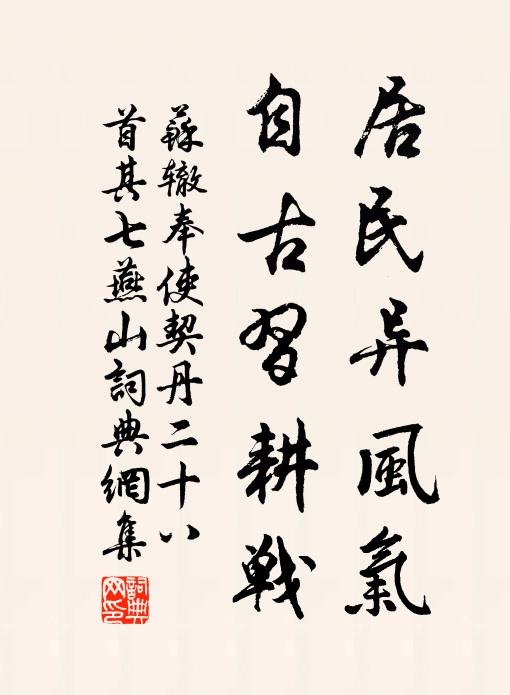 居民异風氣
自古習耕戰
蘇辙奉使契丹二十八
首其七燕山詞典網集
詞典網印